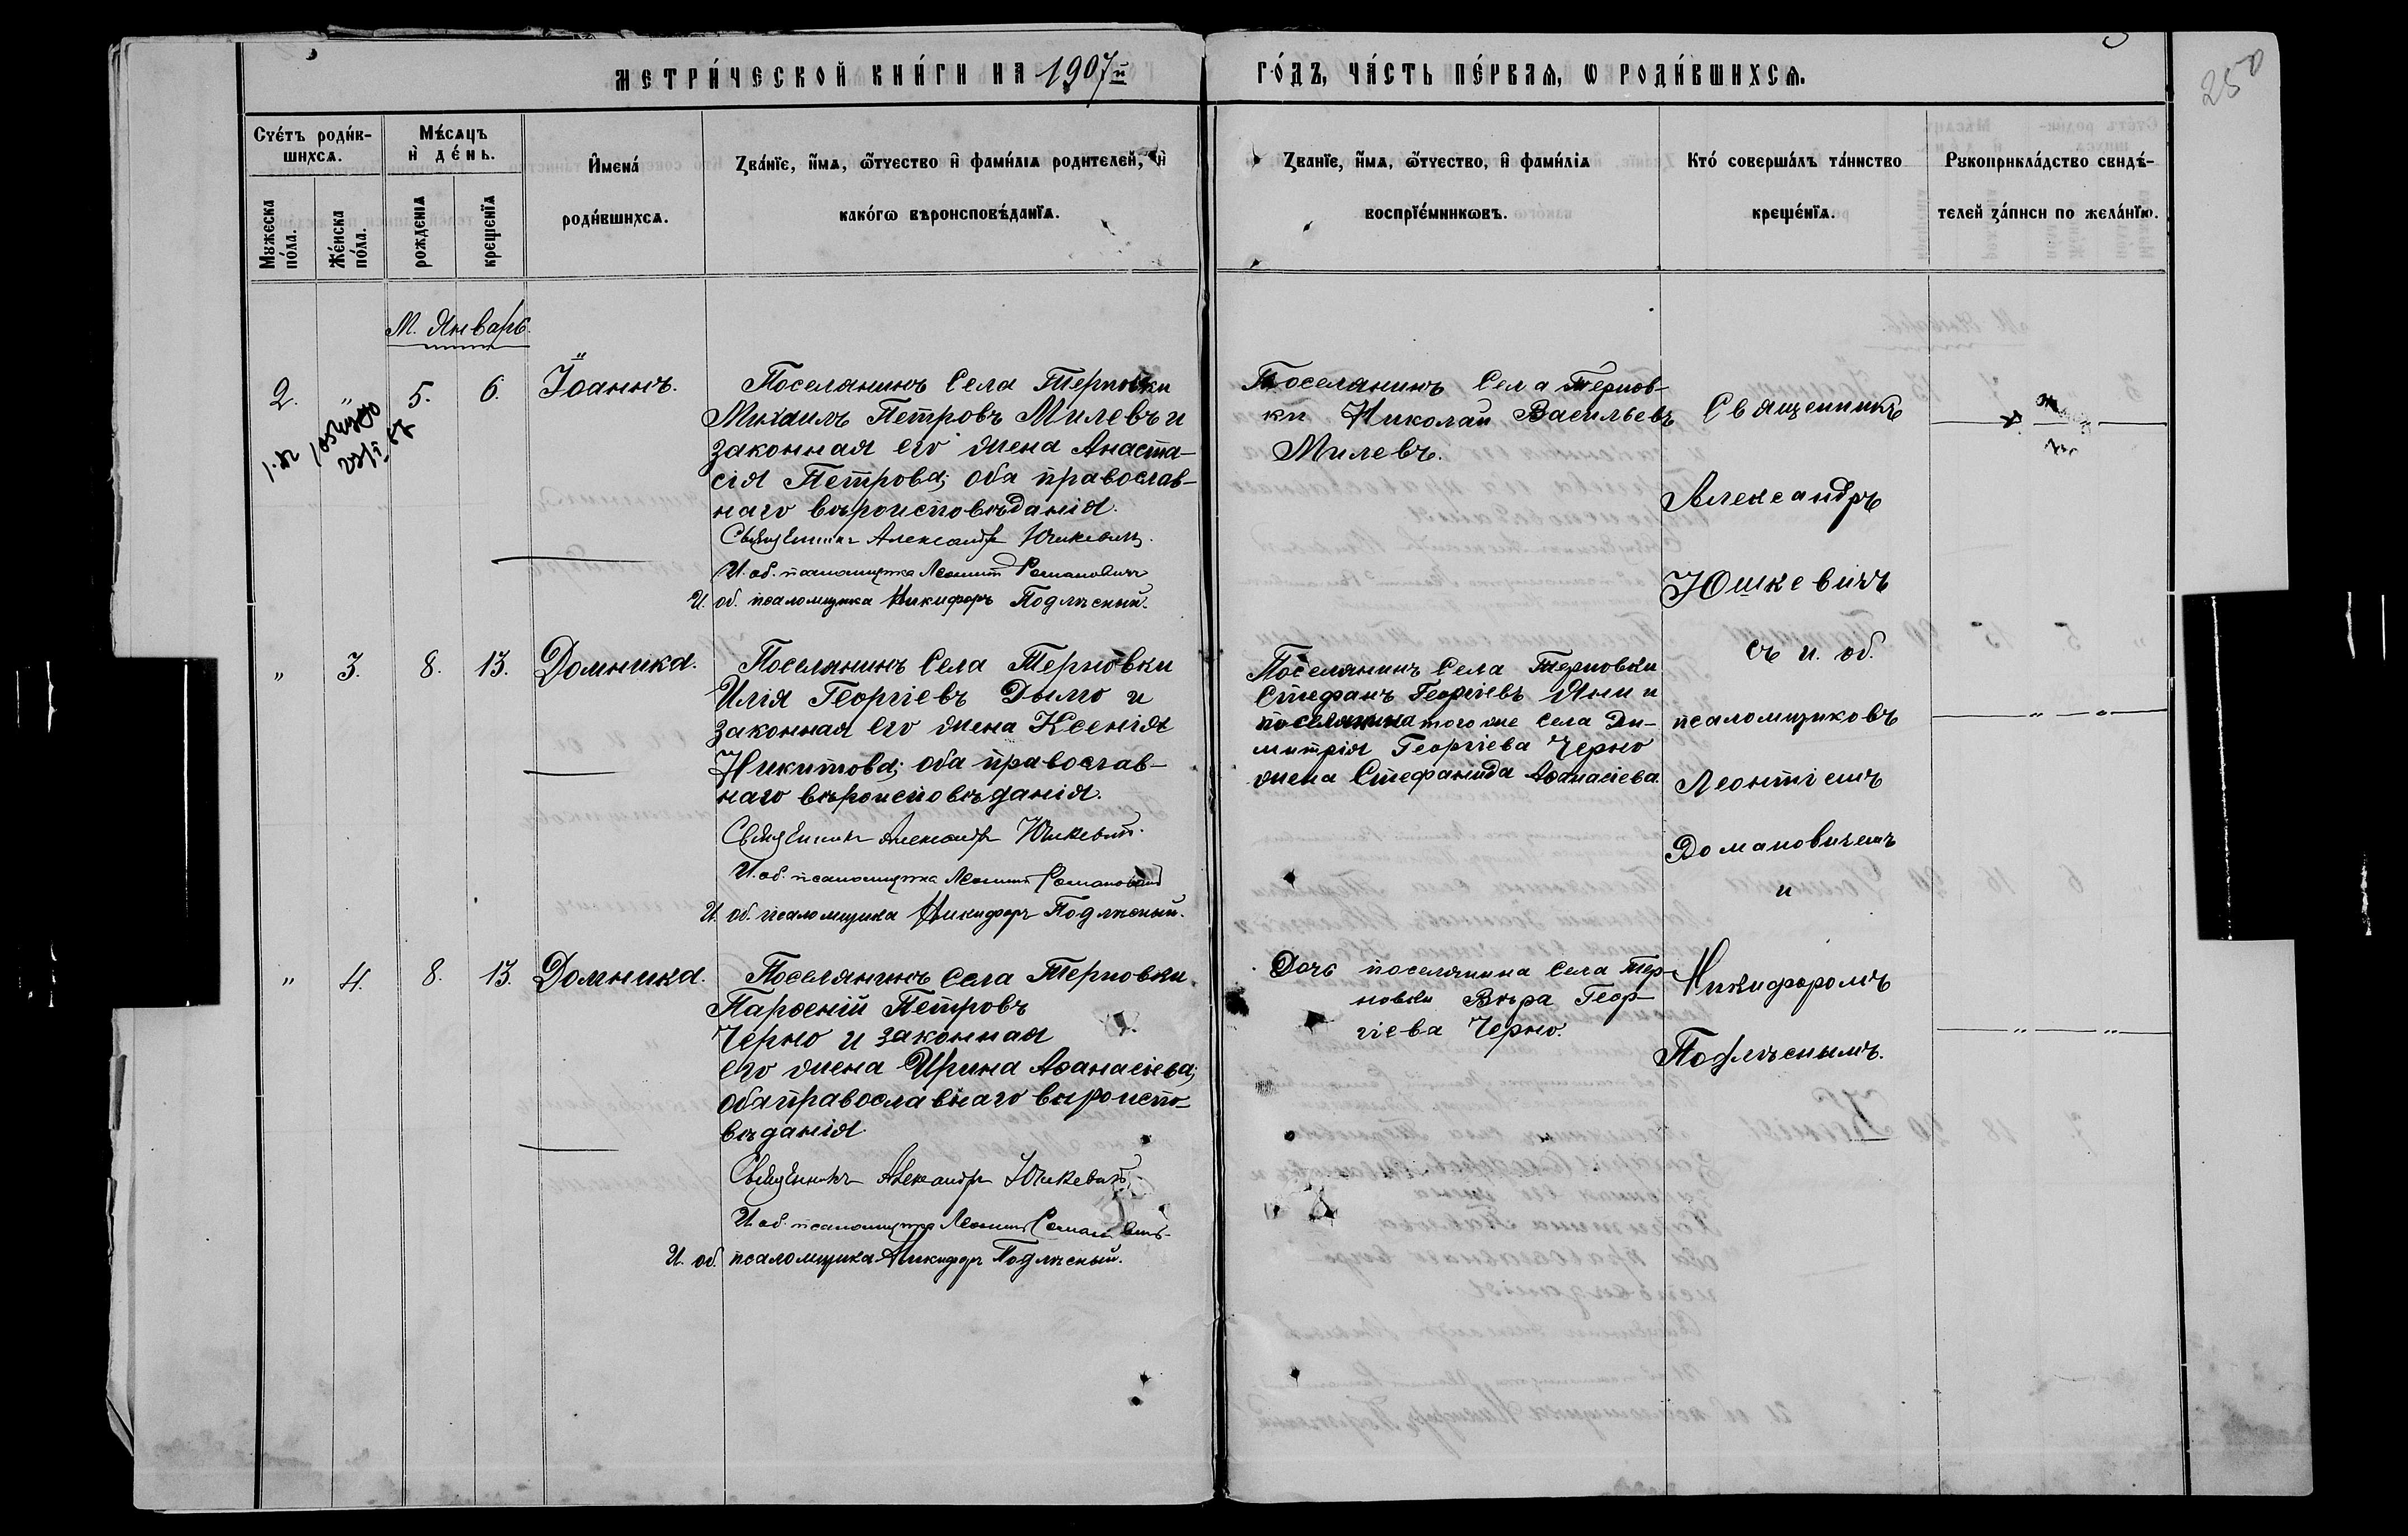 МЕТРИ́ЧЕСКОЙ КНИ́ГИ НА 1907й
ГО́ДЪ, ЧА́СТЬ ПЕ́РВАѦ, Ѡ РОДИ́ВШИХСѦ.
250
Сче́тъ роди́в-
шихсѧ.
Мѣ́сѧцъ
и де́нь.
Мꙋжеска
по́ла.
Же́нска
по́ла.
рожденіѧ
крещенїѧ
И҆мена́
роди́вшихсѧ.
Зва́нїе, и҆́мѧ, ѻ҆́тчество и҆ фами́лїѧ родителей, и҆
како́гѡ вѣроисповѣ́данїѧ.
Званїе, и҆́мѧ, ѻ҆́тчество, и҆ фами́лїѧ
воспрїе́мникѡвъ.
Кто́ соверша́лъ та́инство
креще́нїѧ.
Рꙋкоприкла́дство свидѣ́-
телей за́писи по жела́нїю.
М. Январь.
2. " 5. 6. Іоаннъ.
Поселянинъ села Терновки
Михаилъ Петровъ Милевъ и
законная его жена Анаста-
сія Петрова; оба православ-
наго вѣроисповѣданія.
Священникъ Александръ Юшкевичъ.
И. об. псаломщика Леонтій
И. об. псаломщика Никифоръ Подлѣсный.
Поселянинъ села Тернов-
ки Николай Васильевъ
Милевъ.
Священникъ
Александръ
Юшкевичъ
съ и. об.
псаломщиковъ
Леонтіемъ
Домановичемъ
и
Никифоромъ
Подлѣснымъ.
" 3. 8. 13. Домника.
Поселянинъ села Терновки
Илія Георгіевъ Дымо и
законная его жена Ксенія
Никитова; оба православ-
наго вѣроисповѣданія.
Священникъ Александръ Юшкевичъ.
И. об. псаломщика Леонтій
И. об. псаломщика Никифоръ Подлѣсный.
Поселянинъ села Терновки
Стефанъ Георгіевъ Яни и
поселянина того же села Ди-
митрія Георгіева Черно
жена Стефанида Аѳанасіева
" 4. 8. 13. Домника.
Поселянинъ села Терновки
Парѳеній Петровъ
Черно и законная
его жена Ирина Аѳанасіева;
оба православнаго вѣроиспо-
вѣданія.
Священникъ Александръ Юшкевичъ
И. об. псаломщика Леонтій
И. об. псаломщика Никифоръ Подлѣсный.
Дочь поселянина села Тер-
новки Вѣра Геор-
гіева Черно.